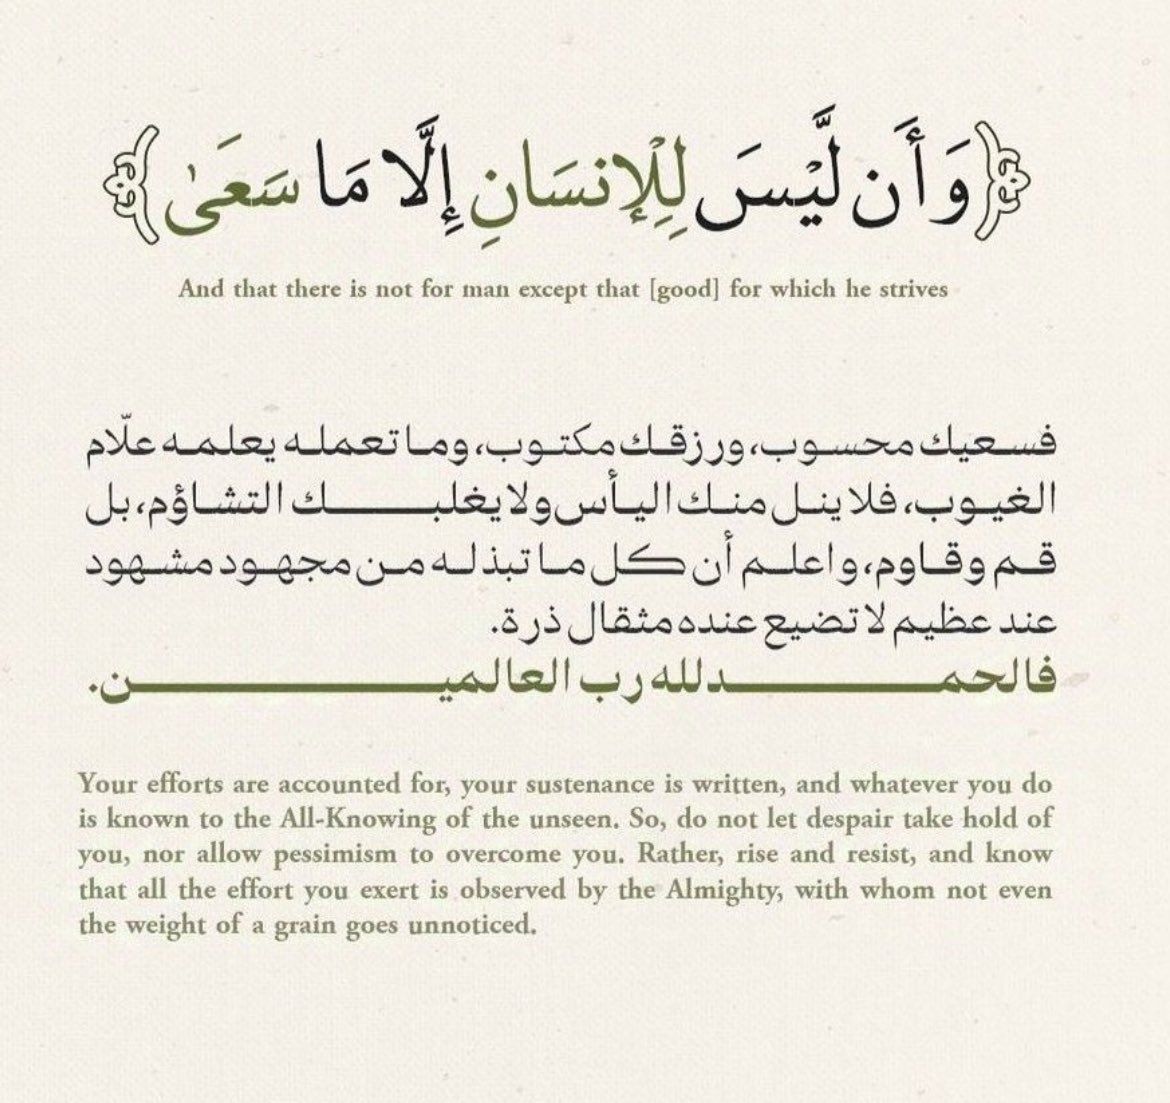 ﴿وَأَن لَّيْسَ لِلْإِنسَانِ إِلَّا مَا سَعَىٰ﴾
And that there is not for man except that [good] for which he strives
فسعيك محسوب، ورزقك مكتوب، وما تعمله يعلمه علّام
الغيوب، فلا ينل منك اليأس ولا يغلبك التشاؤم، بل
قم وقاوم، واعلم أن كل ما تبذله من مجهود مشهود
عند عظيم لا تضيع عنده مثقال ذرة.
فالحمد لله رب العالمين.
Your efforts are accounted for, your sustenance is written, and whatever you do
is known to the All-Knowing of the unseen. So, do not let despair take hold of
you, nor allow pessimism to overcome you. Rather, rise and resist, and know
that all the effort you exert is observed by the Almighty, with whom not even
the weight of a grain goes unnoticed.